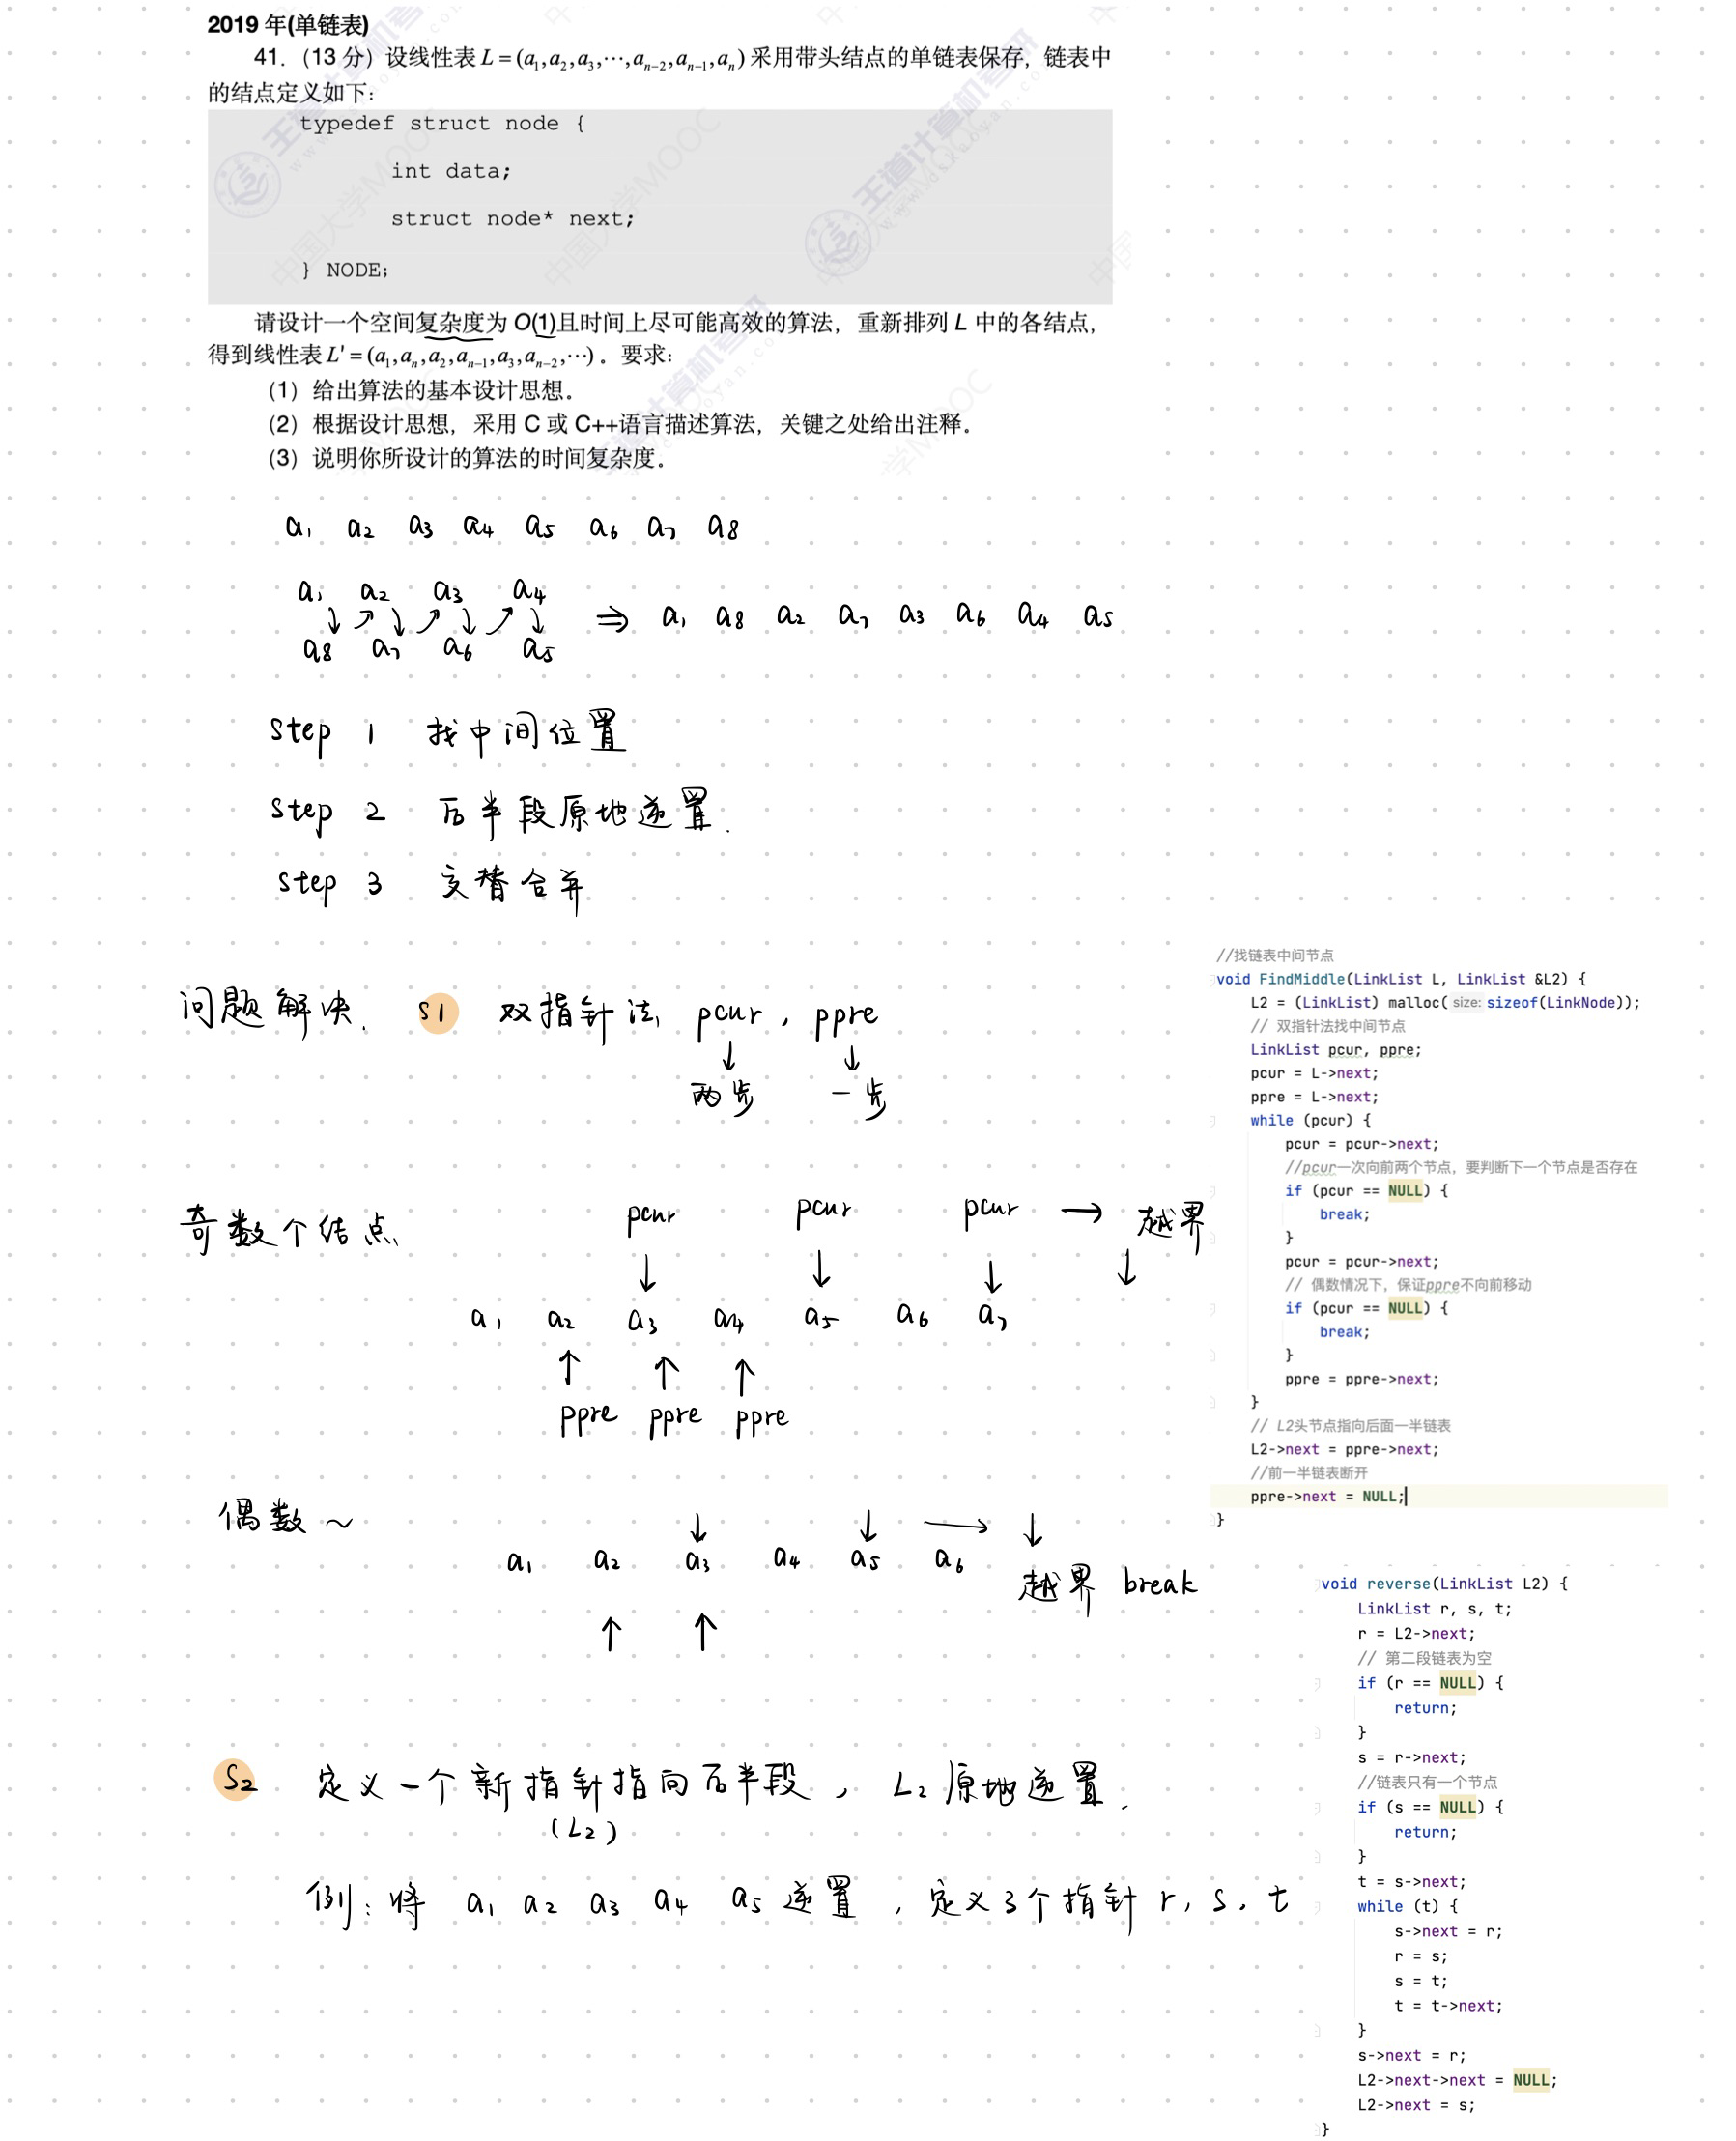 2019 年(单链表)
41.（13 分）设线性表 L = (a₁,a₂,a₃,⋯,aₙ₋₂,aₙ₋₁,aₙ) 采用带头结点的单链表保存，链表中
的结点定义如下：
typedef struct node {
int data;
struct node* next;
} NODE;
请设计一个空间复杂度为 O(1)且时间上尽可能高效的算法，重新排列 L 中的各结点，
得到线性表 L' = (a₁,aₙ,a₂,aₙ₋₁,a₃,aₙ₋₂,⋯) 。要求：
（1）给出算法的基本设计思想。
（2）根据设计思想，采用 C 或 C++语言描述算法，关键之处给出注释。
（3）说明你所设计的算法的时间复杂度。
a₁ a₂ a₃ a₄ a₅ a₆ a₇ a₈
a₁ a₂ a₃ a₄
↓ ↗ ↓ ↗ ↓ ↗ ↓ ⇒ a₁ a₈ a₂ a₇ a₃ a₆ a₄ a₅
a₈ a₇ a₆ a₅
Step 1 找中间位置
Step 2 后半段原地逆置.
Step 3 交替合并
问题解决. S1 双指针法, pcur, ppre
↓ ↓
两步 一步
奇数个结点 pcur pcur pcur → 越界
↓ ↓ ↓ ↓
a₁ a₂ a₃ a₄ a₅ a₆ a₇
↑ ↑ ↑
ppre ppre ppre
偶数 ~ ↓ ↓ → ↓
a₁ a₂ a₃ a₄ a₅ a₆ 越界 break
↑ ↑
S2 定义一个新指针指向后半段, L₂原地逆置.
(L₂)
例: 将 a₁ a₂ a₃ a₄ a₅ 逆置, 定义3个指针 r, s, t
//找链表中间节点
void FindMiddle(LinkList L, LinkList &L2) {
L2 = (LinkList) malloc( size: sizeof(LinkNode));
// 双指针法找中间节点
LinkList pcur, ppre;
pcur = L->next;
ppre = L->next;
while (pcur) {
pcur = pcur->next;
//pcur一次向前两个节点，要判断下一个节点是否存在
if (pcur == NULL) {
break;
}
pcur = pcur->next;
// 偶数情况下，保证ppre不向前移动
if (pcur == NULL) {
break;
}
ppre = ppre->next;
}
// L2头节点指向后面一半链表
L2->next = ppre->next;
//前一半链表断开
ppre->next = NULL;
}
void reverse(LinkList L2) {
LinkList r, s, t;
r = L2->next;
// 第二段链表为空
if (r == NULL) {
return;
}
s = r->next;
//链表只有一个节点
if (s == NULL) {
return;
}
t = s->next;
while (t) {
s->next = r;
r = s;
s = t;
t = t->next;
}
s->next = r;
L2->next->next = NULL;
L2->next = s;
}